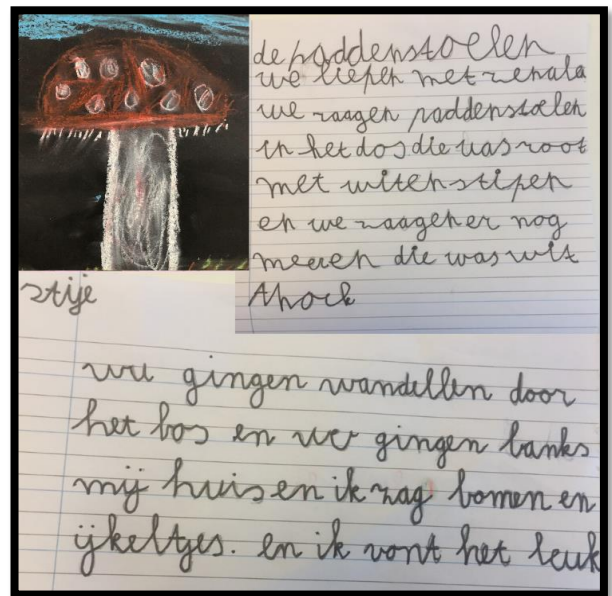 de paddenstoelen
we liepen met zenala
we zaagen paddenstoelen
in het dos die was root
met witen stipen
en we zaagen er nog
meeen die was wit
Ahock
stije
wu gingen wandellen door
het bos en we gingen lanks
mij huis en ik zag bomen en
ijkeltjes. en ik vont het leuk